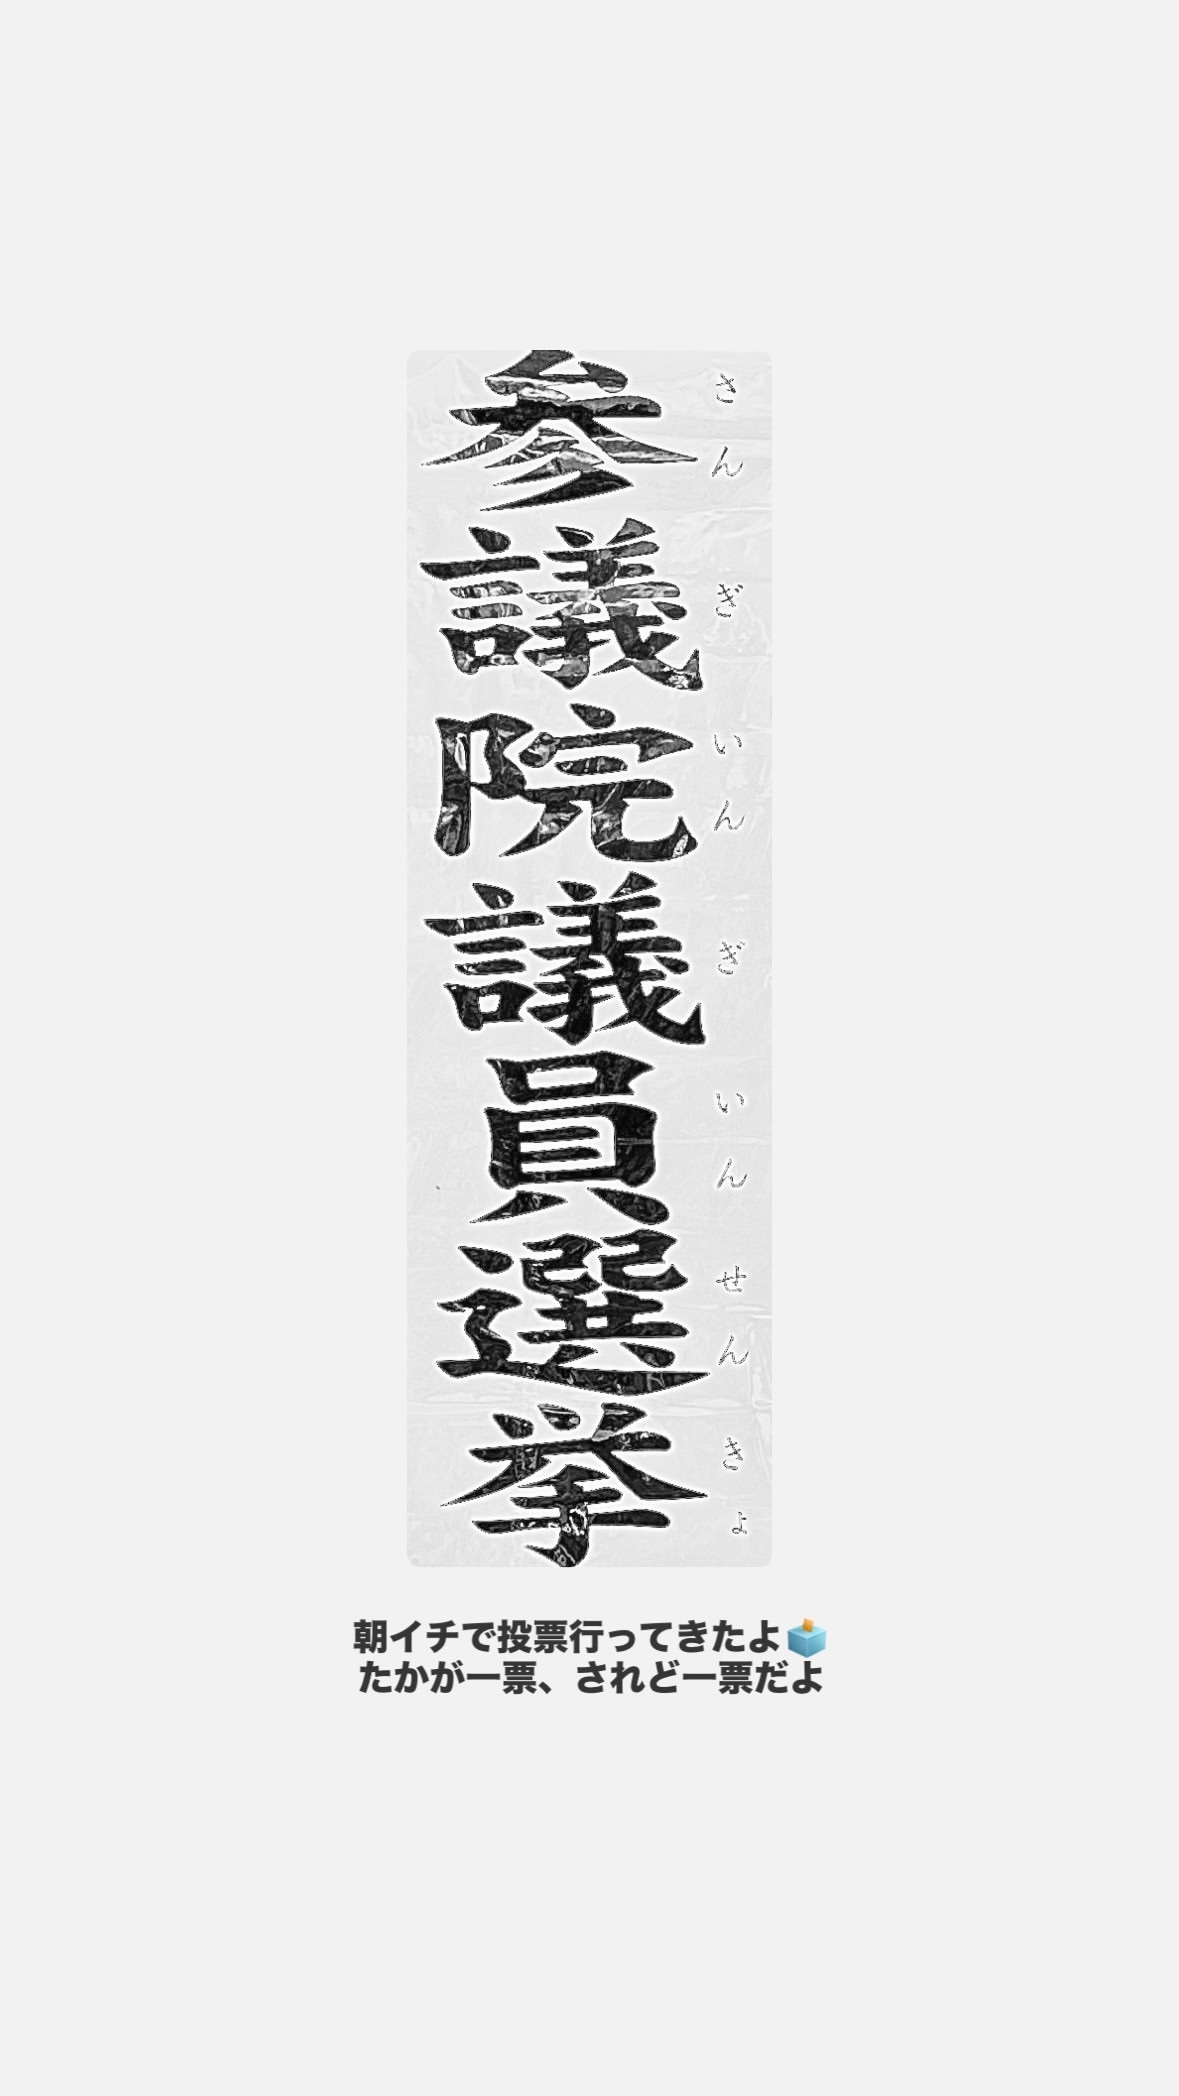 参議院議員選挙
さんぎいんぎいんせんきょ
朝イチで投票行ってきたよ🗳️
たかが一票、されど一票だよ